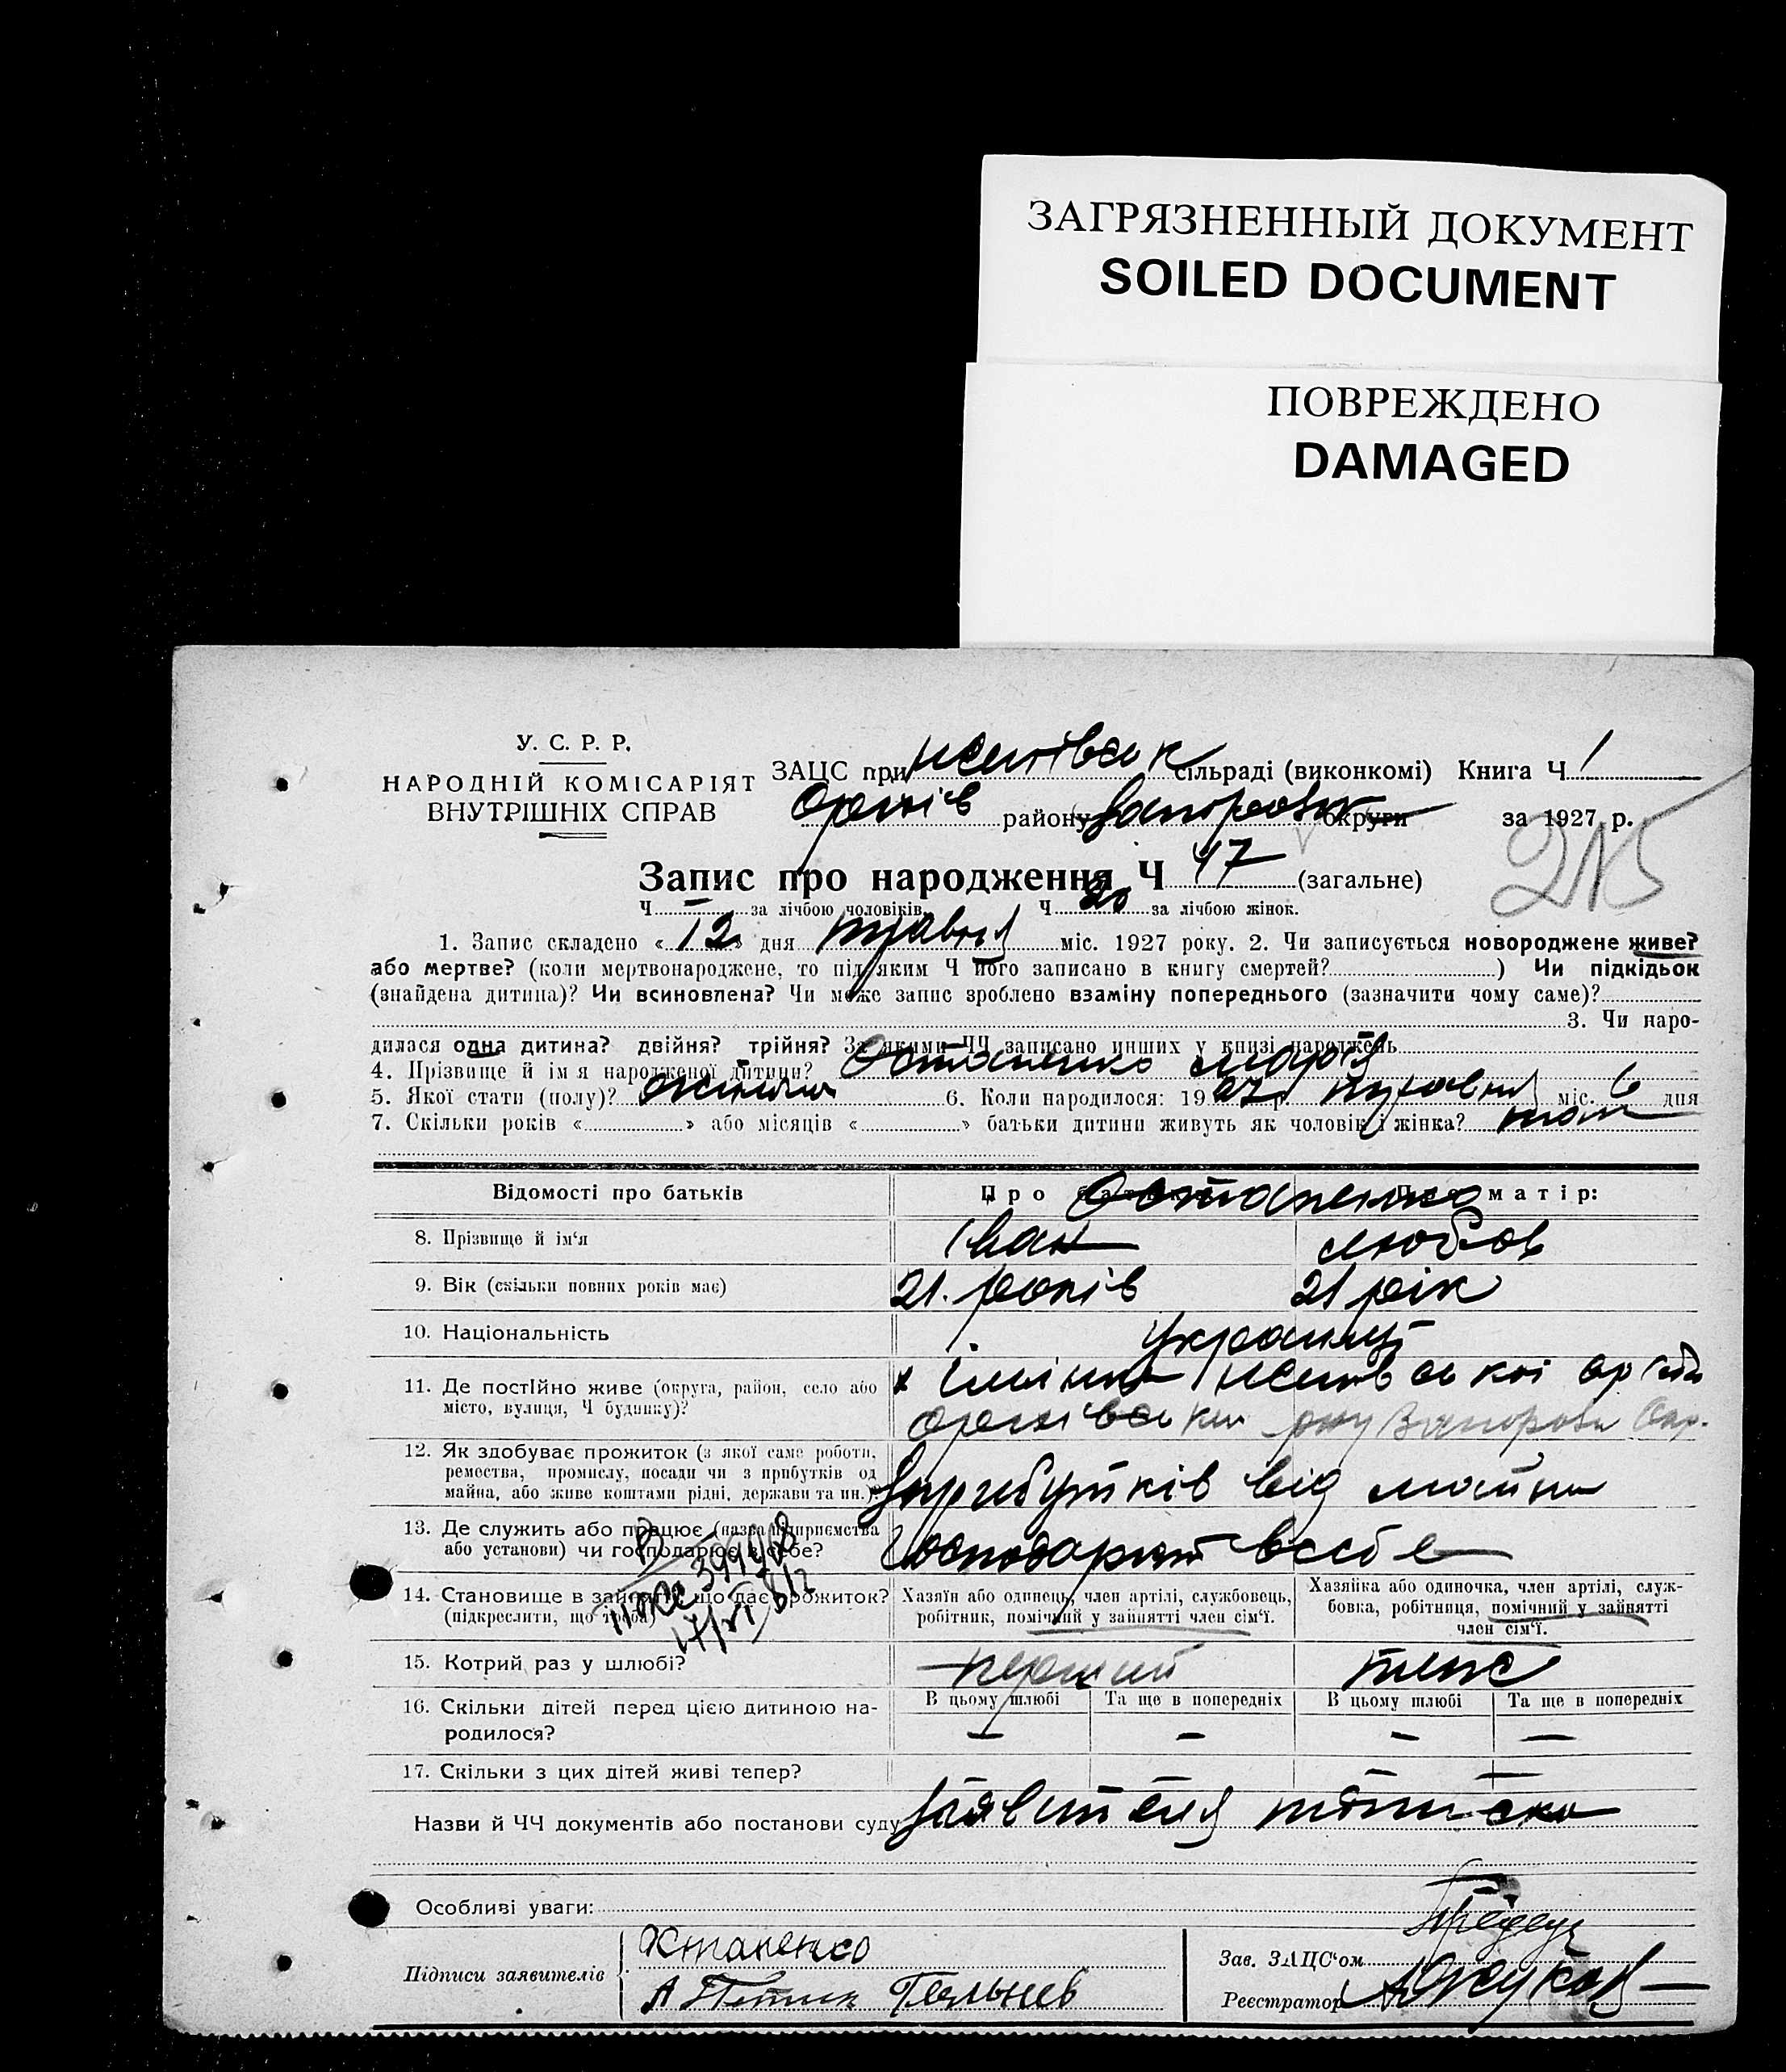 ЗАГРЯЗНЕННЫЙ ДОКУМЕНТ
SOILED DOCUMENT
ПОВРЕЖДЕНО
DAMAGED
У. С. Р. Р.
НАРОДНІЙ КОМІСАРІЯТ
ВНУТРІШНІХ СПРАВ
ЗАЦС при сільраді (виконкомі) Книга Ч 1
району округи за 1927 р.
215
Запис про народження Ч 47 (загальне)
Ч — за лічбою чоловіків. Ч 20 за лічбою жінок.
1. Запис складено « 12 » дня травня міс. 1927 року. 2. Чи записується новороджене живе?
або мертве? (коли мертвонароджене, то під яким Ч його записано в книгу смертей? ) Чи підкідьок
(знайдена дитина)? Чи всиновлена? Чи може запис зроблено взаміну попереднього (зазначити чому саме)?
3. Чи наро-
дилася одна дитина? двійня? трійня? За якими ЧЧ записано инших у книзі народжень
4. Прізвище й ім я народженої дитини? Остапенко Марія
5. Якої стати (полу)? 6. Коли народилося: 19 27 р. травня міс. 6 дня
7. Скільки років « » або місяців « » батьки дитини живуть як чоловік і жінка?
Відомості про батьків Про батька: Про матір:
Остапенко
8. Прізвище й ім'я Іван Любов
9. Вік (скільки повних років має) 21. років 21 рік
10. Національність Українці
11. Де постійно живе (округа, район, село або
місто, вулиця, Ч будинку)?
12. Як здобуває прожиток (з якої саме роботи,
ремества, промислу, посади чи з прибутків од
майна, або живе коштами рідні, держави та ин.)? прибутків від майна
13. Де служить або працює (назва підприємства
або установи) чи господарює в себе? Господарют в себе
14. Становище в занятті, що дає прожиток?
(підкреслити, що треба)
Хазяїн або одинець, член артілі, службовець,
робітник, помічний у зайнятті член сім'ї.
Хазяйка або одиночка, член артілі, служ-
бовка, робітниця, помічний у зайнятті
член сім'ї.
15. Котрий раз у шлюбі? перший теж
16. Скільки дітей перед цією дитиною на-
родилося?
В цьому шлюбі Та ще в попередніх В цьому шлюбі Та ще в попередніх
— — — —
17. Скільки з цих дітей живі тепер? — — — —
Назви й ЧЧ документів або постанови суду
Особливі уваги:
Підписи заявителів Остапенко
Зав. ЗАЦС'ом
Реєстратор